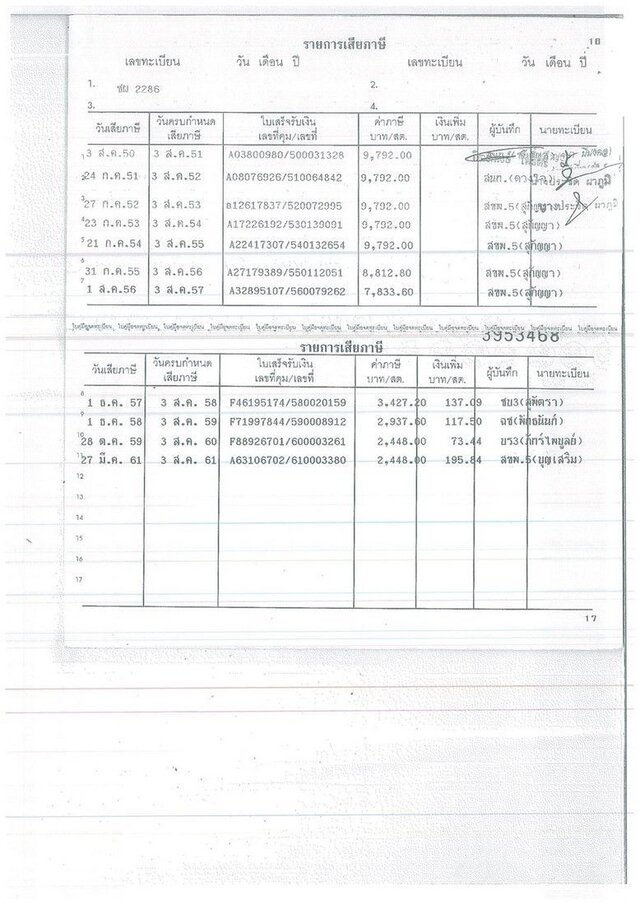 รายการเสียภาษี 16
เลขทะเบียน วัน เดือน ปี เลขทะเบียน วัน เดือน ปี
1. ชผ 2286 2.
3. 4.
วันเสียภาษี วันครบกำหนดเสียภาษี ใบเสร็จรับเงิน เลขที่คุม/เลขที่ ค่าภาษี บาท/สต. เงินเพิ่ม บาท/สต. ผู้บันทึก นายทะเบียน
1 3 ส.ค.50 3 ส.ค.51 A03800980/500031328 9,792.00
2 24 ก.ค.51 3 ส.ค.52 A08076926/510064842 9,792.00 สมก.(ดวงใจ) นางประชิด ผาภูมิ
3 27 ก.ค.52 3 ส.ค.53 B12617837/520072995 9,792.00 สขพ.5(สุกัญญา) นางประชิด ผาภูมิ
4 23 ก.ค.53 3 ส.ค.54 A17226192/530139091 9,792.00 สขพ.5(สุกัญญา)
5 21 ก.ค.54 3 ส.ค.55 A22417307/540132654 9,792.00 สขพ.5(สุกัญญา)
6 31 ก.ค.55 3 ส.ค.56 A27179389/550112051 8,812.80 สขพ.5(สุกัญญา)
7 1 ส.ค.56 3 ส.ค.57 A32895107/560079262 7,833.60 สขพ.5(สุกัญญา)
3953468
รายการเสียภาษี
วันเสียภาษี วันครบกำหนดเสียภาษี ใบเสร็จรับเงิน เลขที่คุม/เลขที่ ค่าภาษี บาท/สต. เงินเพิ่ม บาท/สต. ผู้บันทึก นายทะเบียน
8 1 ธ.ค. 57 3 ส.ค. 58 F46195174/580020159 3,427.20 137.09 ชบ3(สุพัตรา)
9 1 ธ.ค. 58 3 ส.ค. 59 F71997844/590008912 2,937.60 117.50 ฉช(พิทธนันท์)
10 28 ต.ค. 59 3 ส.ค. 60 F88926701/600003261 2,448.00 73.44
11 27 มี.ค. 61 3 ส.ค. 61 A63106702/610003380 2,448.00 195.84 สขพ.5(บุญเสริม)
12
13
14
15
16
17
17